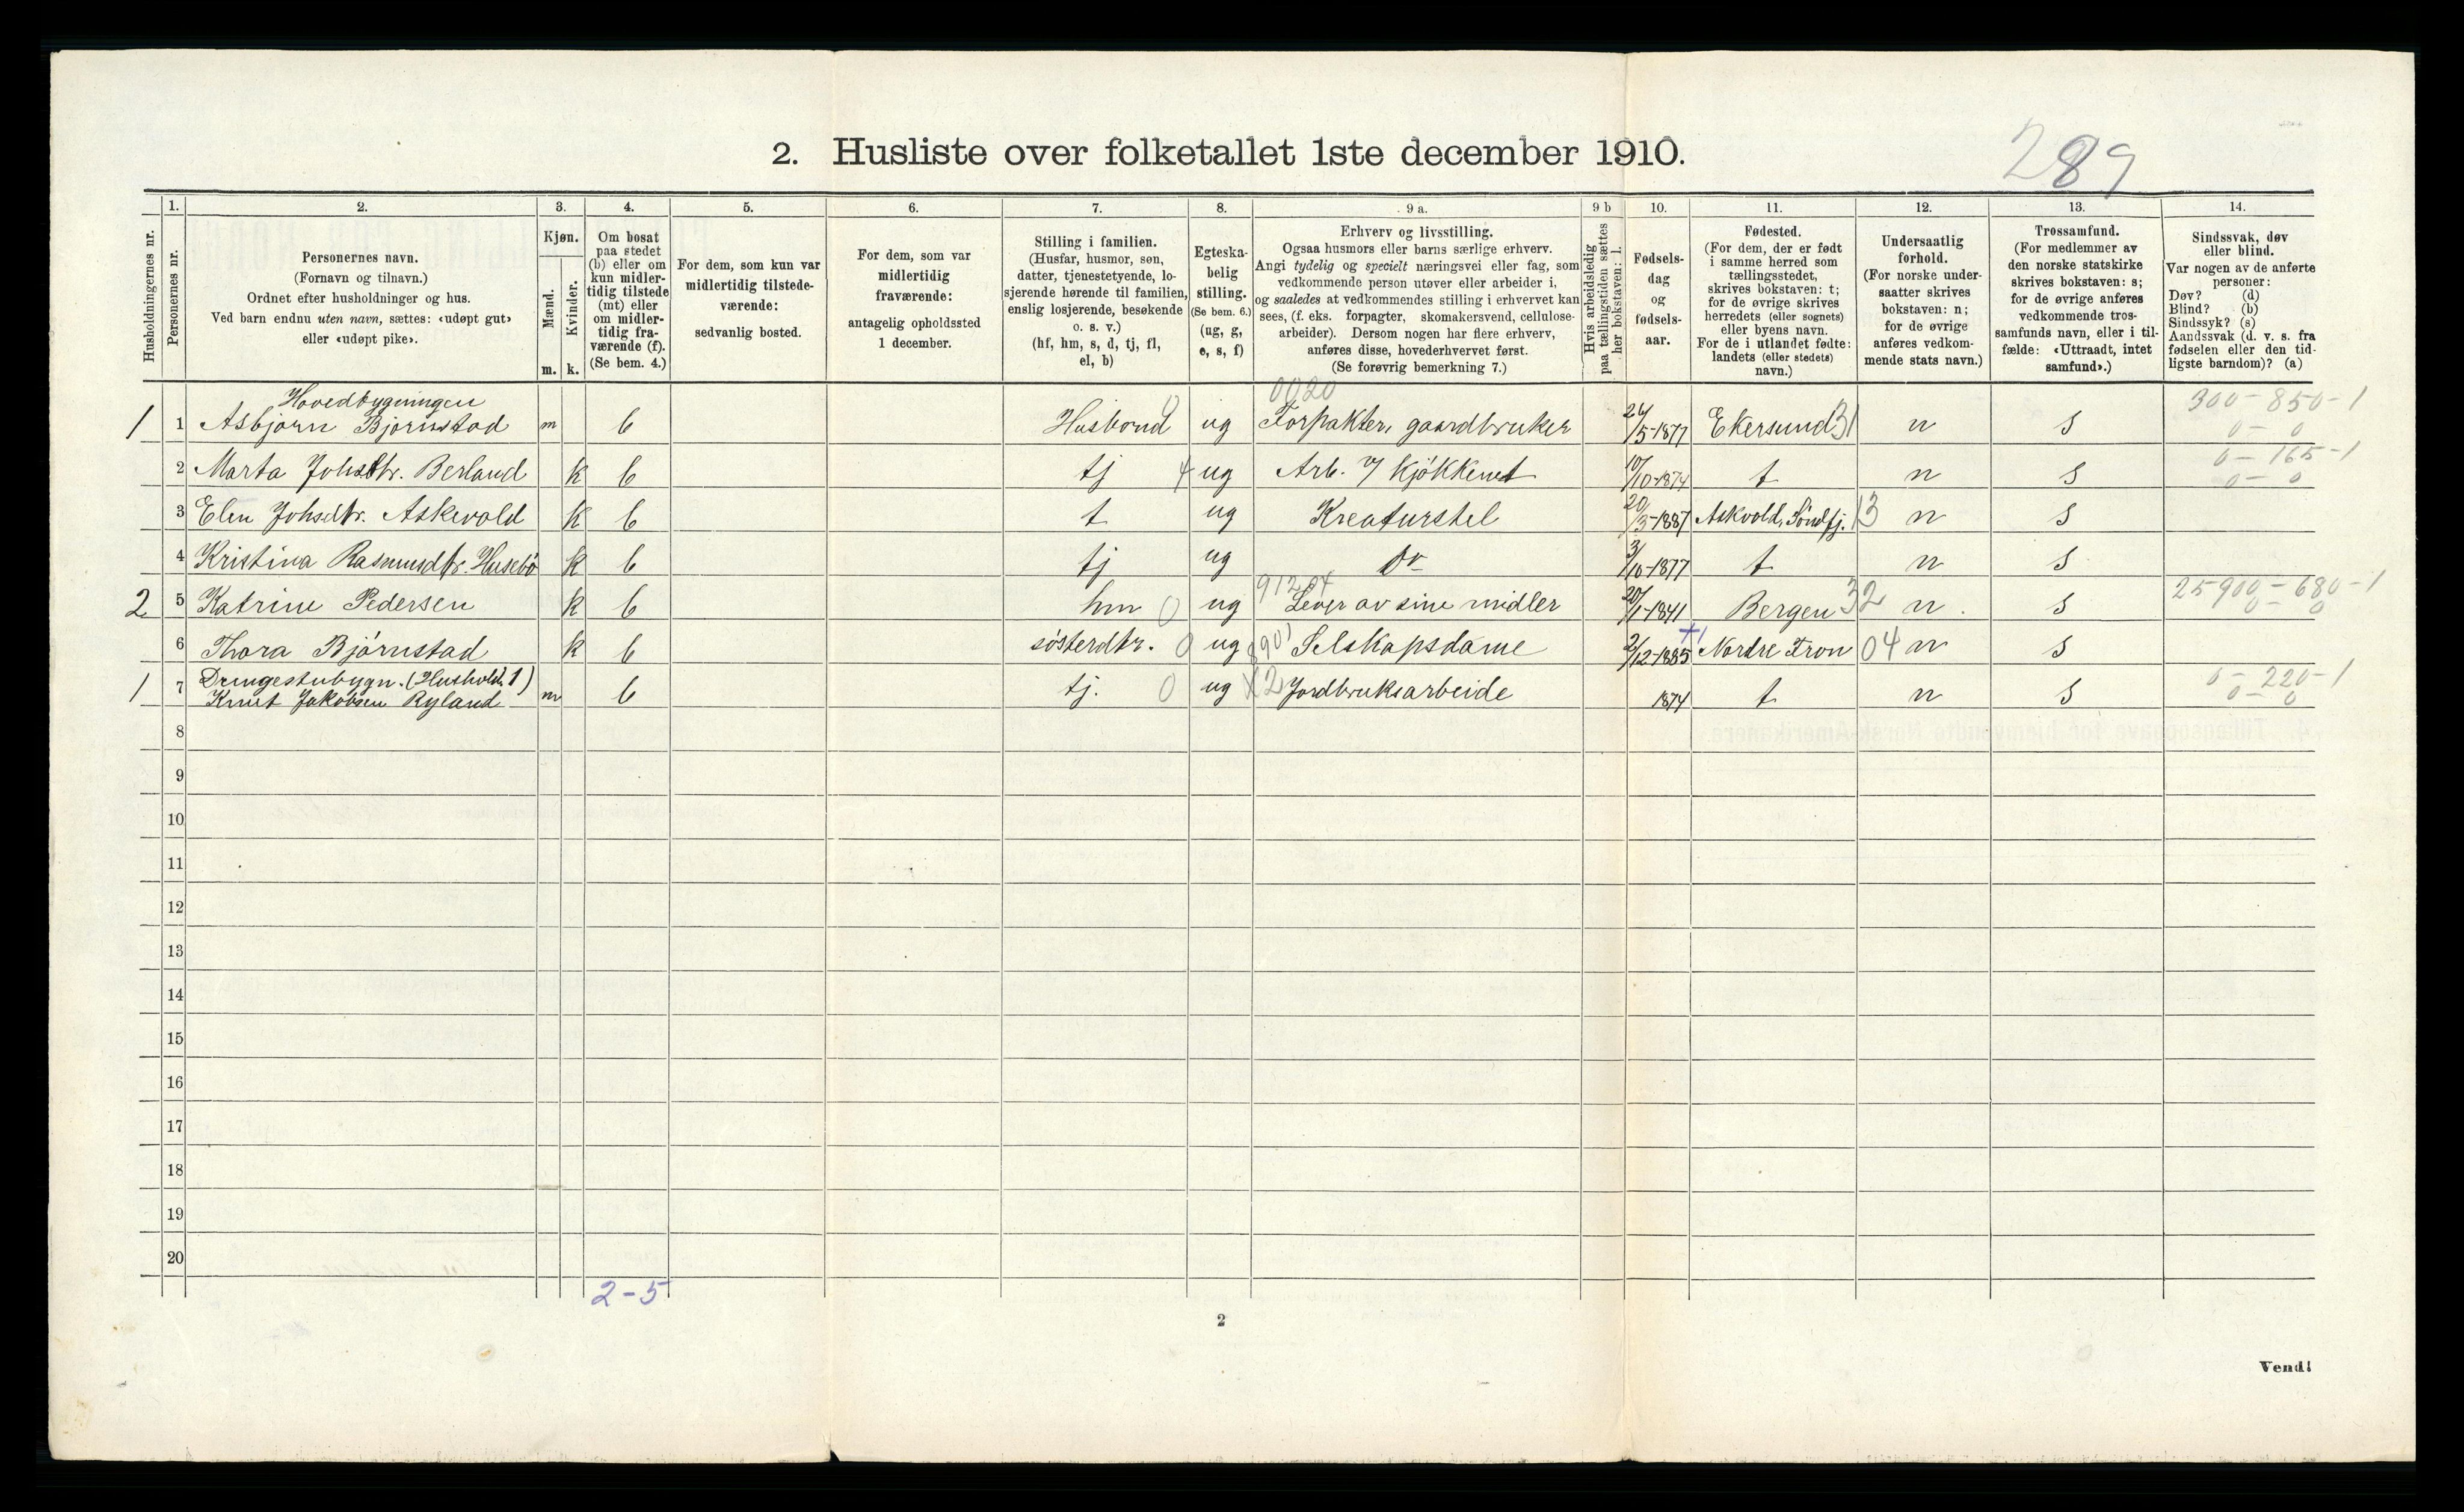 289
2. Husliste over folketallet 1ste december 1910.
Husholdningernes nr.
1.
Personernes nr.
2.
Personernes navn.
(Fornavn og tilnavn.)
Ordnet efter husholdninger og hus.
Ved barn endnu uten navn, sættes: «udøpt gut»
eller «udøpt pike».
3.
Kjøn.
Mænd.
Kvinder.
m. k.
4.
Om bosat
paa stedet
(b) eller om
kun midler-
tidig tilstede
(mt) eller
om midler-
tidig fra-
værende (f).
(Se bem. 4.)
5.
For dem, som kun var
midlertidig tilstede-
værende:
sedvanlig bosted.
6.
For dem, som var
midlertidig
fraværende:
antagelig opholdssted
1 december.
7.
Stilling i familien.
(Husfar, husmor, søn,
datter, tjenestetyende, lo-
sjerende hørende til familien,
enslig losjerende, besøkende
o. s. v.)
(hf, hm, s, d, tj, fl,
el, b)
8.
Egteska-
belig
stilling.
(Se bem. 6.)
(ug, g,
e, s, f)
9 a.
Erhverv og livsstilling.
Ogsaa husmors eller barns særlige erhverv.
Angi tydelig og specielt næringsvei eller fag, som
vedkommende person utøver eller arbeider i,
og saaledes at vedkommendes stilling i erhvervet kan
sees, (f. eks. forpagter, skomakersvend, cellulose-
arbeider). Dersom nogen har flere erhverv,
anføres disse, hovederhvervet først.
(Se forøvrig bemerkning 7.)
9 b
Hvis arbeidsledig
paa tællingstiden sættes
her bokstaven: l.
10.
Fødsels-
dag
og
fødsels-
aar.
11.
Fødested.
(For dem, der er født
i samme herred som
tællingsstedet,
skrives bokstaven: t;
for de øvrige skrives
herredets (eller sognets)
eller byens navn.
For de i utlandet fødte:
landets (eller stedets)
navn.)
12.
Undersaatlig
forhold.
(For norske under-
saatter skrives
bokstaven: n;
for de øvrige
anføres vedkom-
mende stats navn.)
13.
Trossamfund.
(For medlemmer av
den norske statskirke
skrives bokstaven: s;
for de øvrige anføres
vedkommende tros-
samfunds navn, eller i til-
fælde: «Uttraadt, intet
samfund».)
14.
Sindssvak, døv
eller blind.
Var nogen av de anførte
personer:
Døv? (d)
Blind? (b)
Sindssyk? (s)
Aandssvak (d. v. s. fra
fødselen eller den tid-
ligste barndom)? (a)
Hovedbygningen 0020 300-850-1
1 1 Asbjørn Bjørnstad m b Husbond 0 ug Forpakter, gaardbruker 24/5-1877 Ekersund 31 n s 0-0
2 Marta Johsdtr. Berland k b tj 4 ug Arb. i kjøkkenet 10/10-1874 t n s 0-165-1 0-0
3 Elen Johsdtr. Askevold k b t ug Kreaturstel 20/3-1887 Askvold, Søndfj. 13 n s
4 Kristina Rasmusdtr. Husebø k b tj ug Do 3/10-1877 t n s
2 5 Katrine Pedersen k b hm 0 ug 91204 Lever av sine midler 20/1-1841 Bergen 32 n. s 25900-680-1 0-0
6 Thora Bjørnstad k b søsterdtr. 0 ug 8901 Selskapsdame 2/12-1885 Nordre Fron 04 n s
Drengestubygn. (Hushold. 1)
1 7 Knut Jakobsen Ryland m b tj. 0 ug X2 Jordbruksarbeide 1874 t n s 0-220-1 0-0
8
9
10
11
12
13
14
15
16
17
18
19
20
2-5
2
Vend!